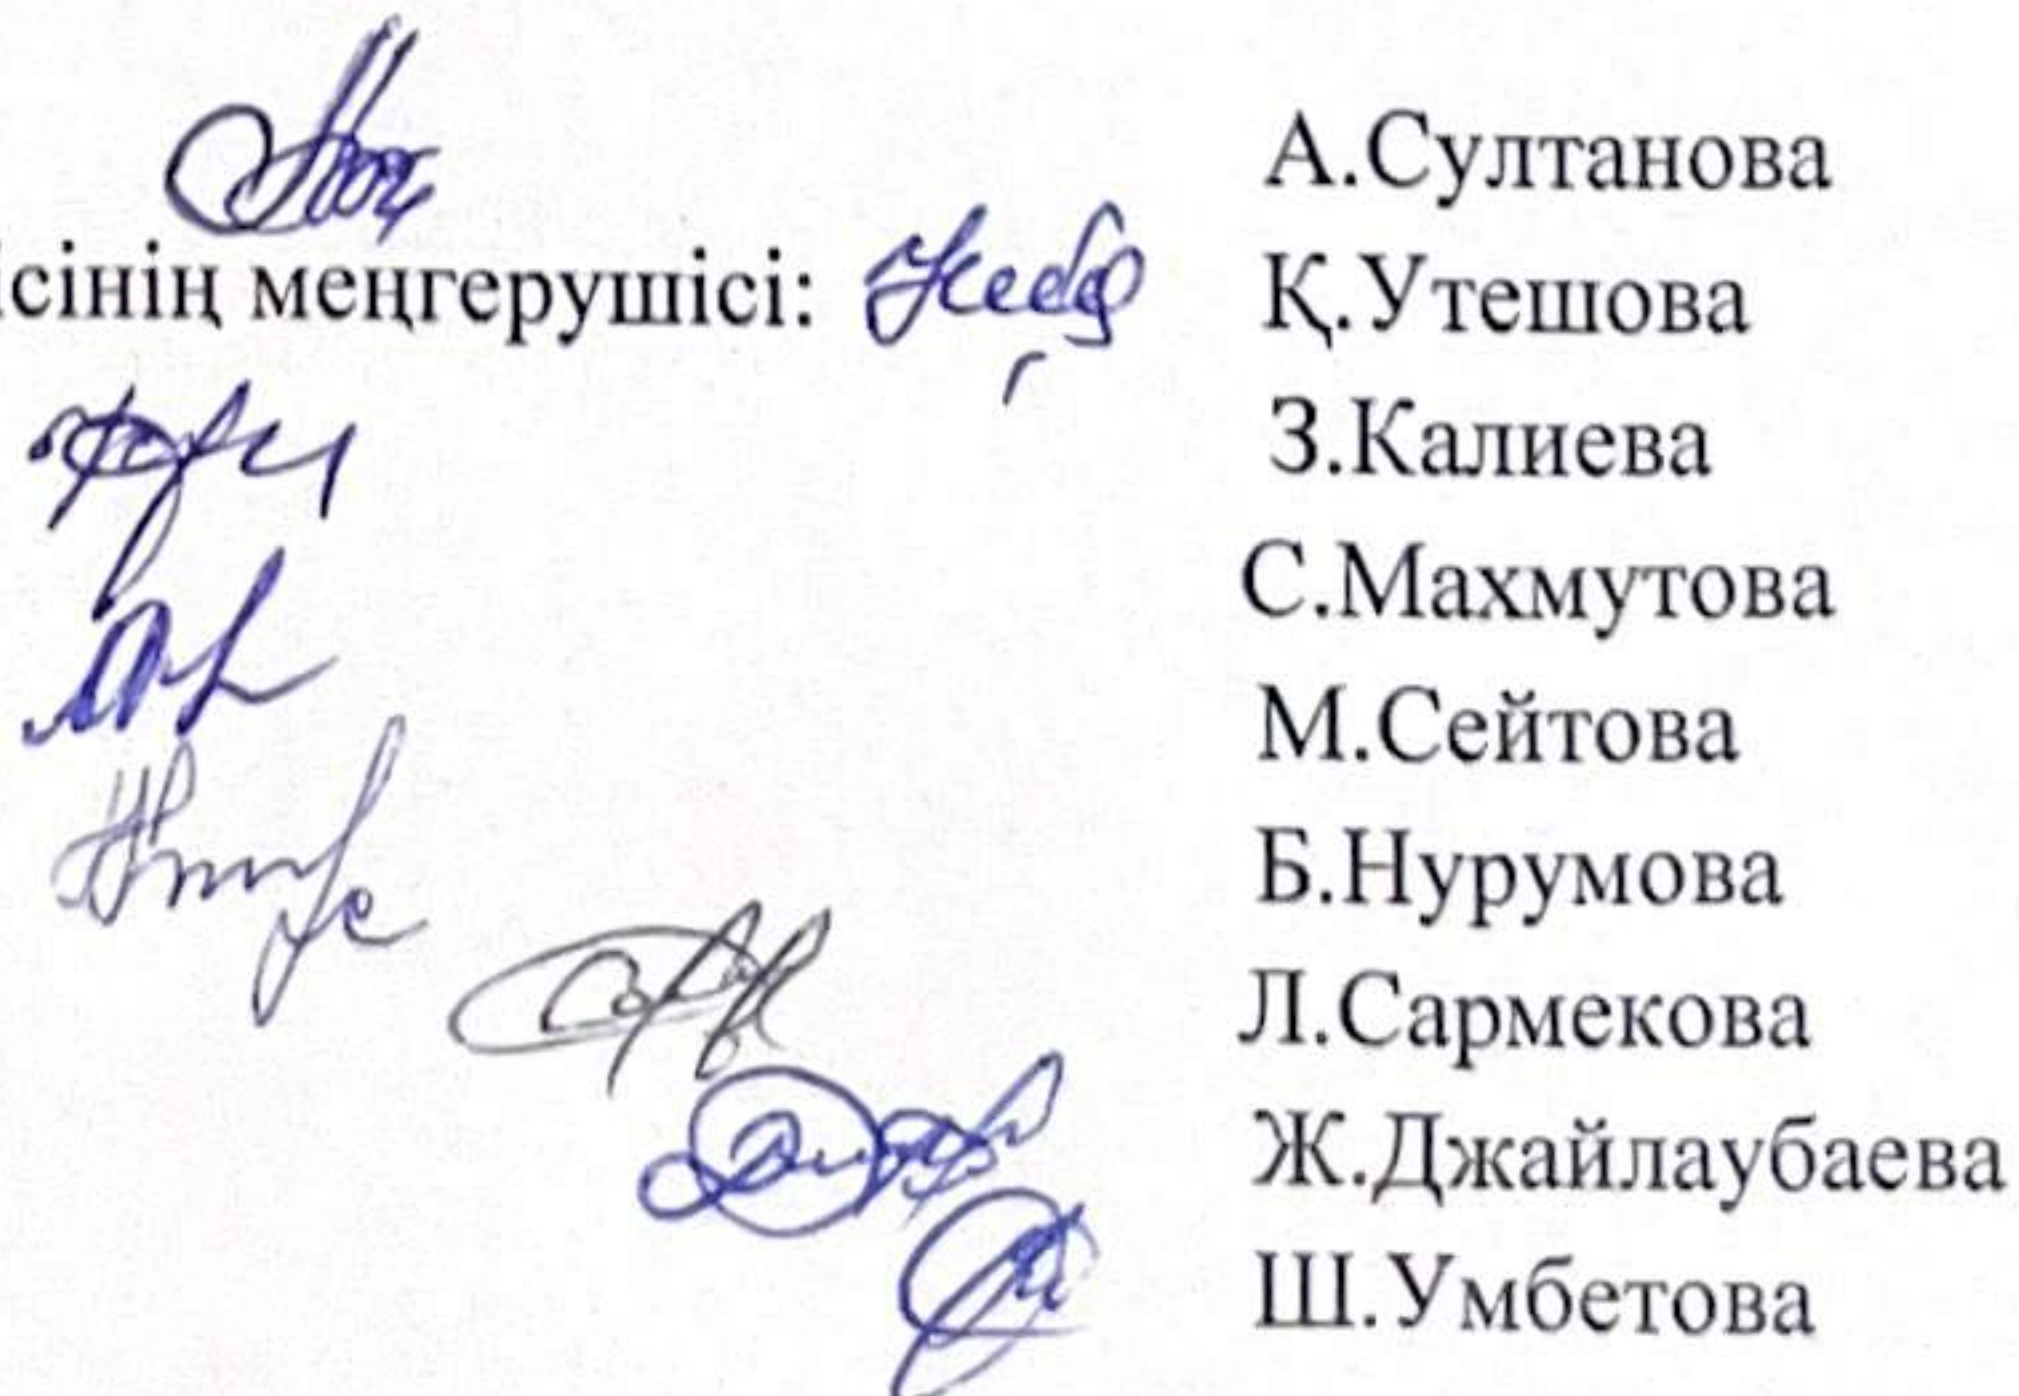 А.Султанова
сінің меңгерушісі: Қ.Утешова
З.Калиева
С.Махмутова
М.Сейтова
Б.Нурумова
Л.Сармекова
Ж.Джайлаубаева
Ш.Умбетова